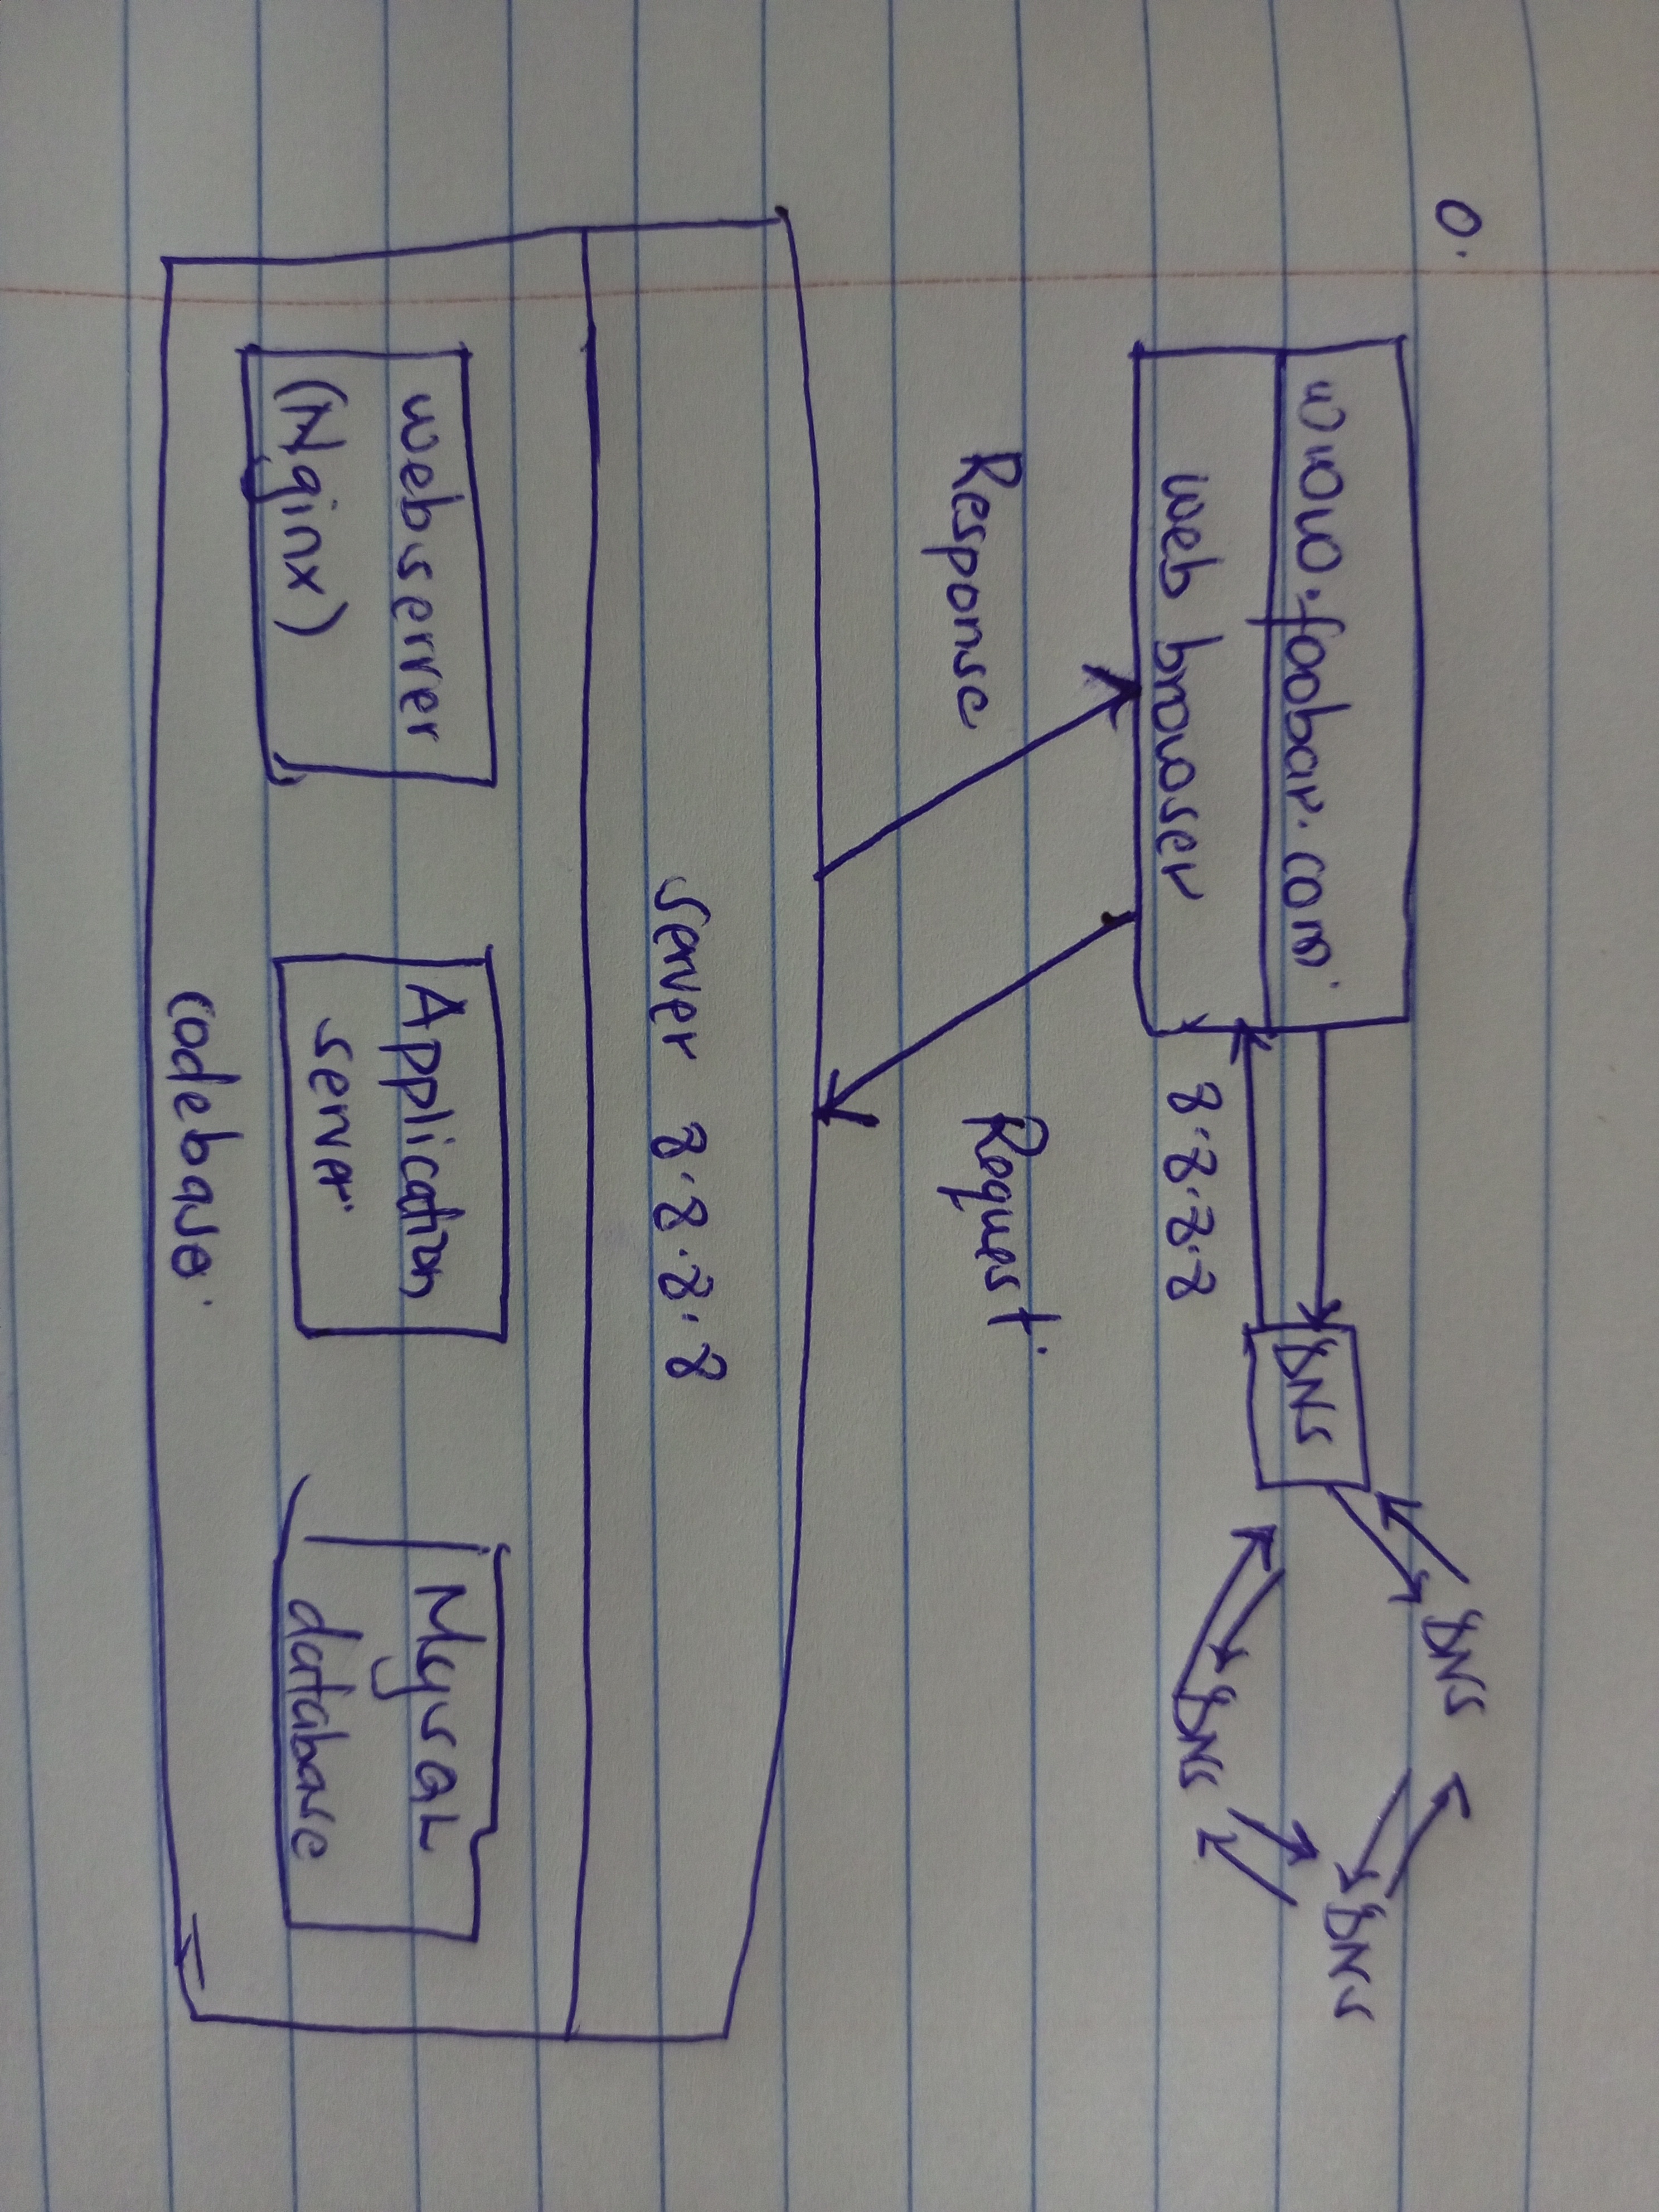 0.
www.foobar.com
web browser
8.8.8.8
DNS
DNS
DNS
DNS
Response
Request.
server 8.8.8.8
webserver
(Nginx)
Application
server
MySQL
database
codebase.